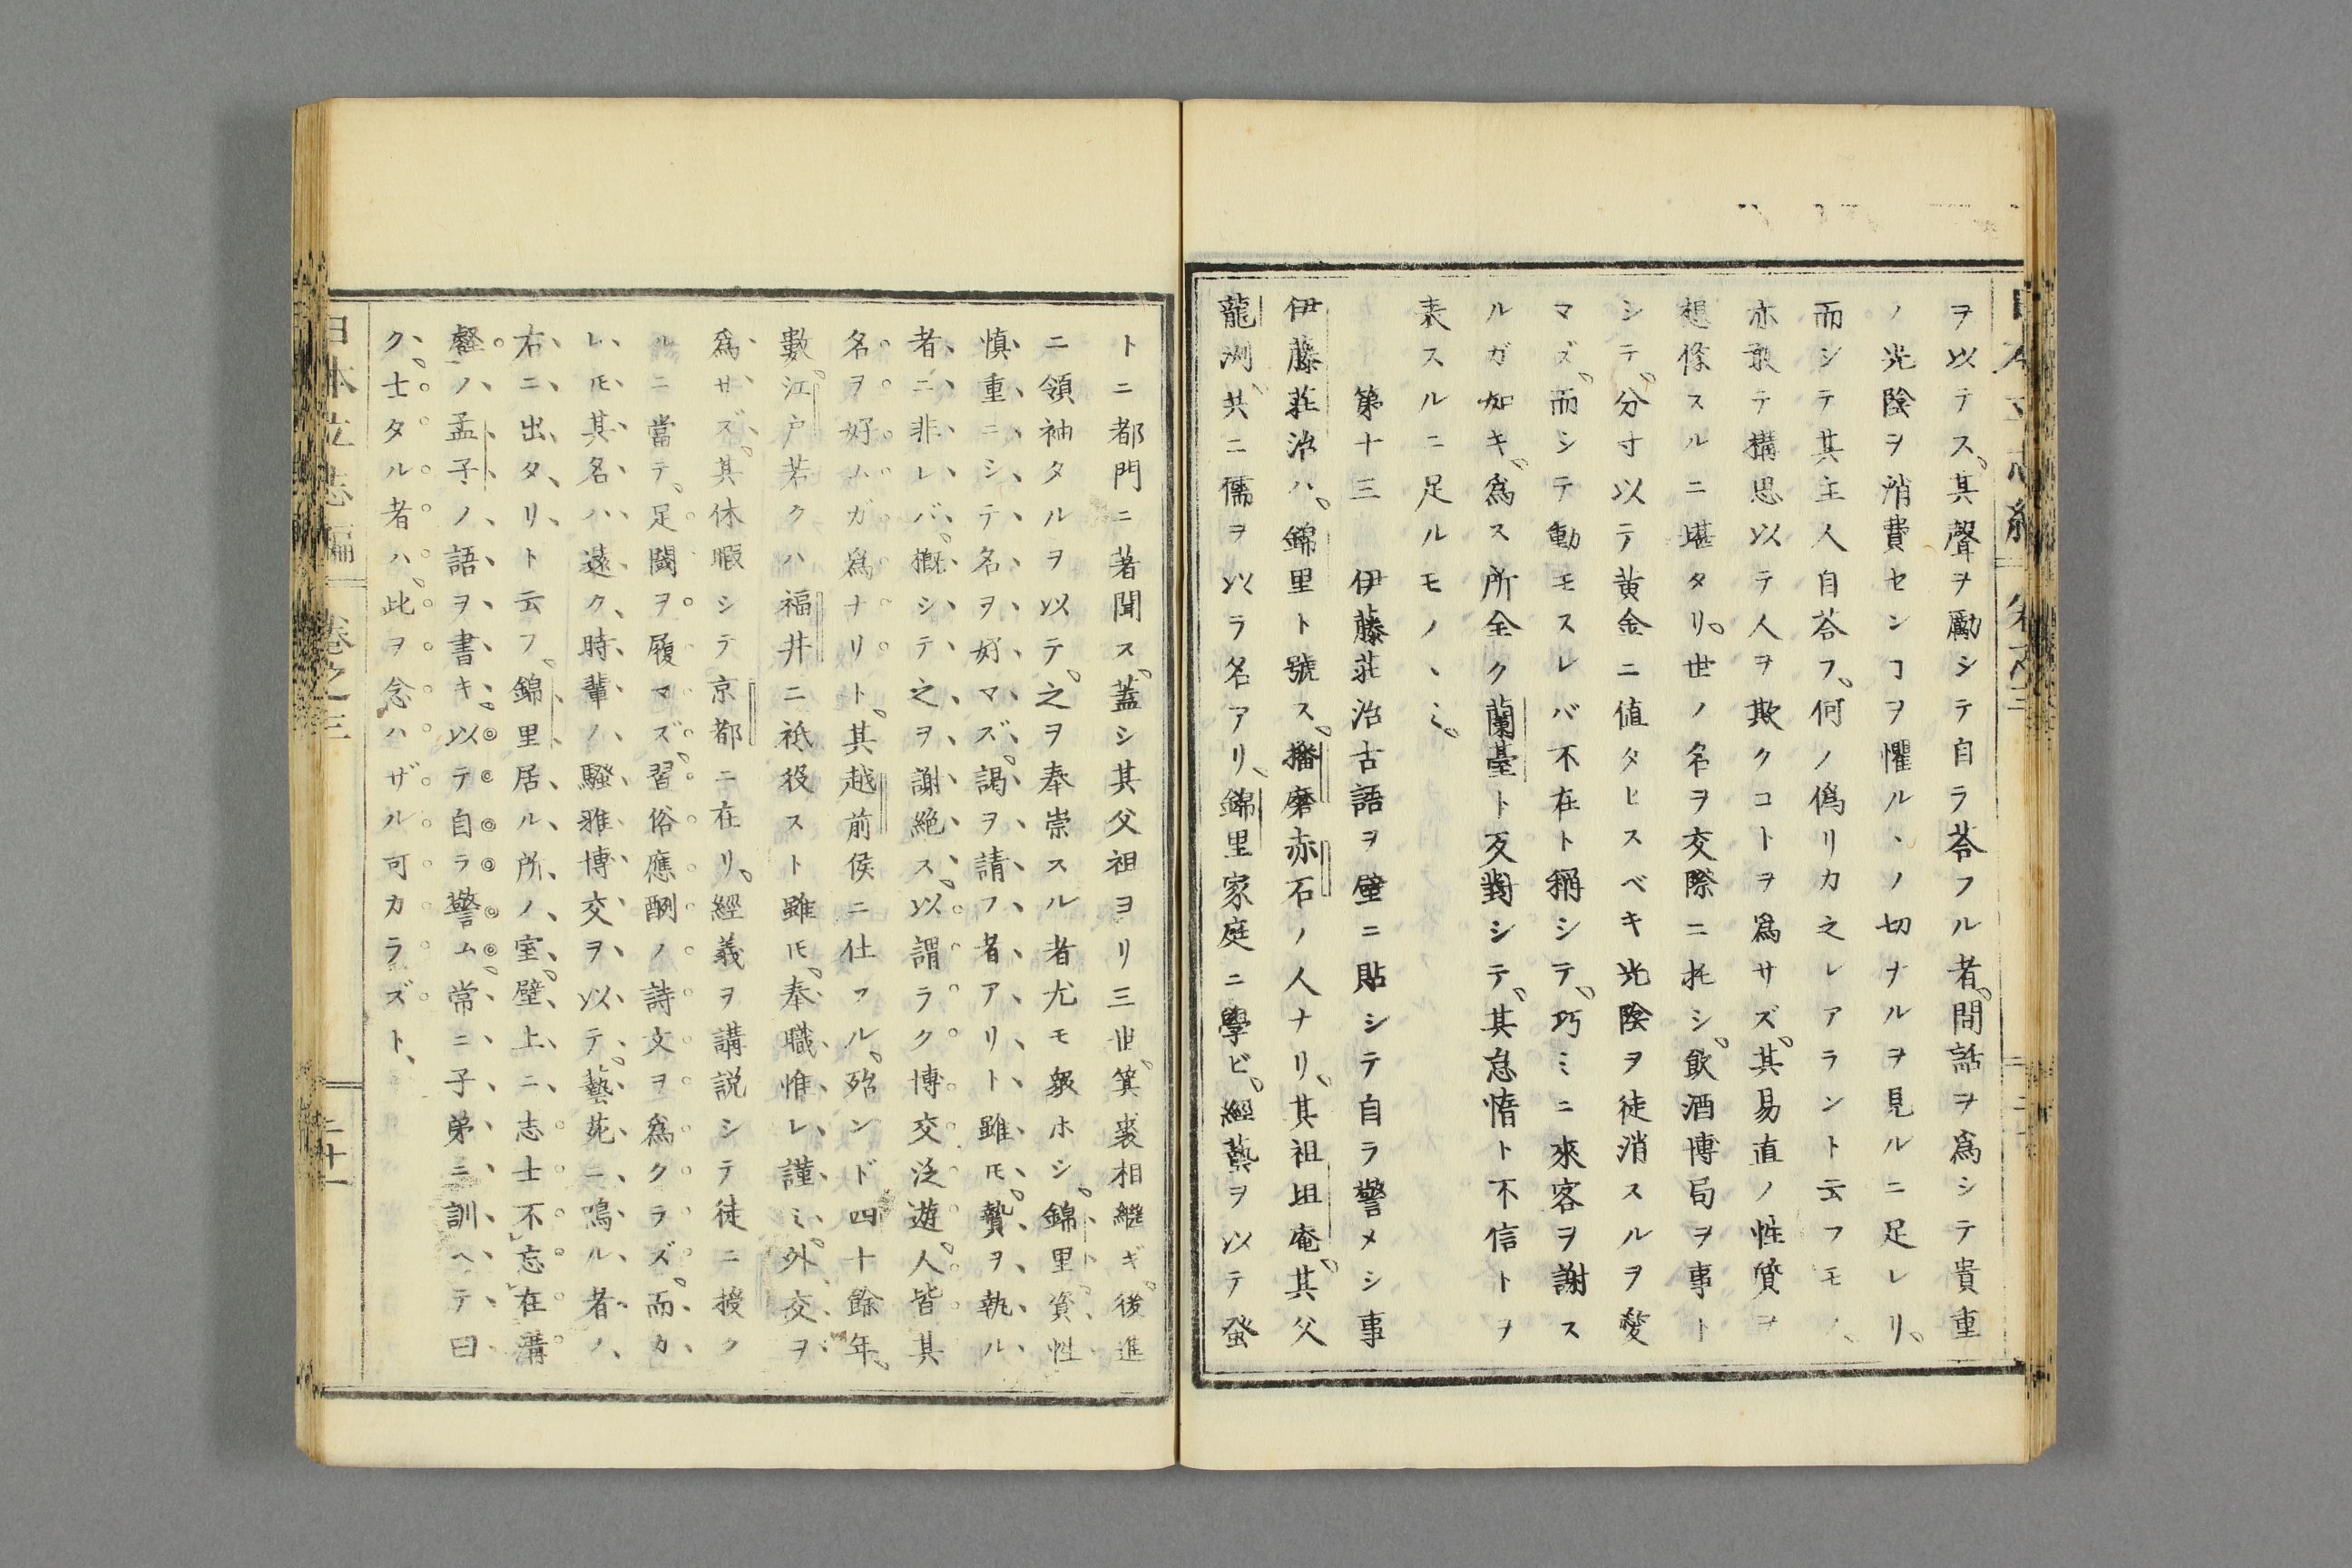 ヲ以テス、其聲ヲ勵シテ自ラ荅フル者、間話ヲ爲シテ貴重
ノ光陰ヲ消費センヿヲ懼ルヽノ切ナルヲ見ルニ足レリ、
而シテ其主人自荅フ、何ノ僞リカ之レアラント云フモノ、
亦敢テ搆思以テ人ヲ欺クコトヲ爲サズ、其易直ノ性質ヲ
想像スルニ堪タリ、世ノ名ヲ交際ニ托シ、飮酒博局ヲ事ト
シテ、分寸以テ黄金ニ値タヒスベキ光陰ヲ徒消スルヲ愛
マズ、而シテ動モスレバ不在ト稱シテ、巧ミニ來客ヲ謝ス
ルガ如キ、爲ス所全ク蘭臺ト反對シテ、其怠惰ト不信トヲ
表スルニ足ルモノヽミ、
第十三　伊藤莊治古語ヲ壁ニ貼シテ自ラ警メシ事
伊藤莊治ハ、錦里ト號ス、播磨赤石ノ人ナリ、其祖坦庵、其父
龍洲共ニ儒ヲ以ラ名アリ、錦里家庭ニ學ビ、經藝ヲ以テ發
トニ都門ニ著聞ス、蓋シ其父祖ヨリ三世、箕裘相繼ギ、後進
ニ領袖タルヲ以テ、之ヲ奉崇スル者尤モ衆ホシ、錦里資性
愼重ニシテ名ヲ好マズ、謁ヲ請フ者アリト雖𪜈、贄ヲ執ル
者ニ非レバ、概シテ之ヲ謝絶ス、以謂ラク博交泛遊、人皆其
名ヲ好ムガ爲ナリト、其越前侯ニ仕フル、殆ンド四十餘年、
數江戸若クハ福井ニ祗役スト雖𪜈、奉職惟レ謹ミ、外交ヲ
爲サズ、其休暇シテ京都ニ在リ、經義ヲ講説シテ徒ニ授ク
ルニ當テ、足閾ヲ履マズ、習俗應酬ノ詩文ヲ爲クラズ、而カ
レ𪜈其名ハ遠ク時輩ノ騷雅博交ヲ以テ、藝苑ニ鳴ル者ノ
右ニ出タリト云フ、錦里居ル所ノ室、壁上ニ志士不忘在溝
壑ノ孟子ノ語ヲ書キ、以テ自ラ警ム、常ニ子弟ニ訓ヘテ曰
ク、士タル者ハ、此ヲ念ハザル可カラズト、
日本立志編　卷之三　二十一